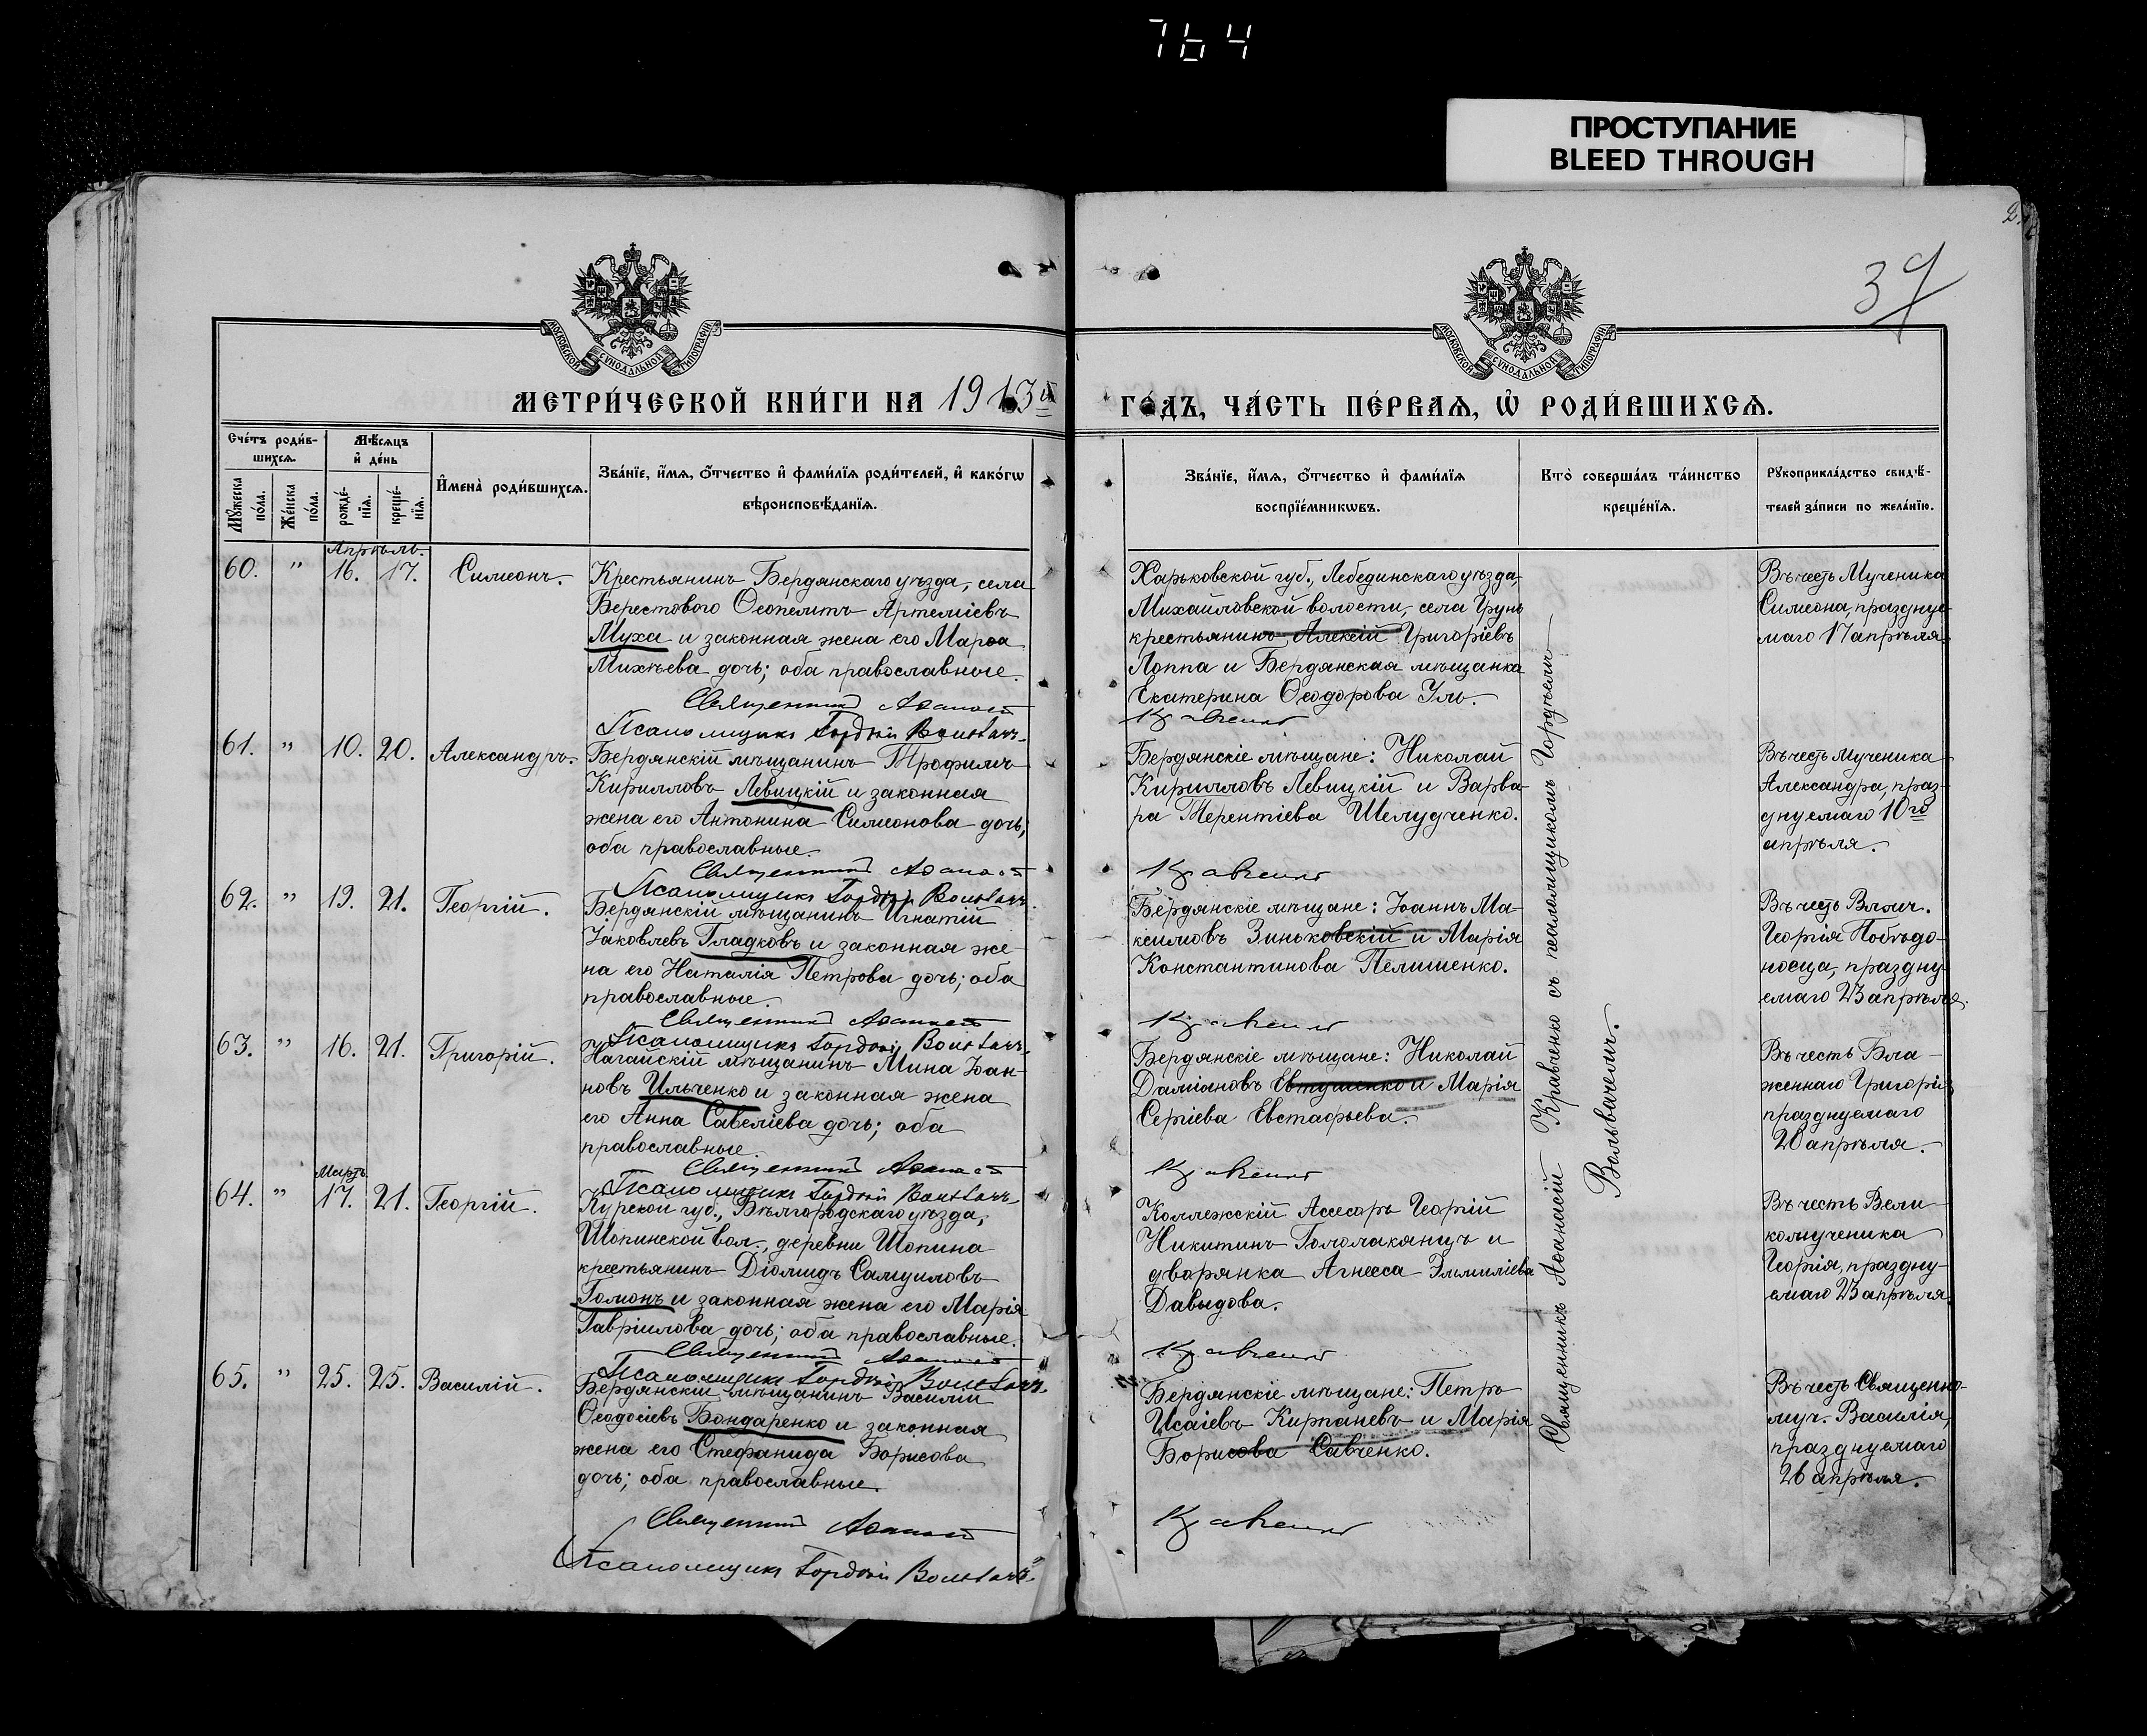 764
ПРОСТУПАНИЕ
BLEED THROUGH
39
МОСКОВСКОЙ СѴНОДАЛЬНОЙ ТИПОГРАФІИ
МОСКОВСКОЙ СѴНОДАЛЬНОЙ ТИПОГРАФІИ
МЕТРИ́ЧЕСКОЙ КНИ́ГИ НА 1913й
ГО́ДЪ, ЧА́СТЬ ПЕ́РВАѦ, Ѡ҆ РОДИ́ВШИХСѦ.
Сче́тъ роди́в-
шихсѧ.
Мꙋ́жеска по́ла.
Же́нска по́ла.
Мѣ́сѧцъ
и҆ де́нь
рожде́-нїѧ.
креще́-нїѧ.
И҆мена̀ роди́вшихсѧ.
Зва́нїе, и҆́мѧ, ѻ҆́тчество и҆ фами́лїѧ роди́телей, и҆ како́гѡ
вѣроисповѣ́данїѧ.
Зва́нїе, и҆́мѧ, ѻ҆́тчество и҆ фами́лїѧ
воспрїе́мникѡвъ.
Кто̀ соверша́лъ та́инство
креще́нїѧ.
Рꙋкоприкла́дство свидѣ́-
телей за́писи по жела́нїю.
Апрѣль.
60. " 16. 17. Симеонъ.
Крестьянинъ Бердянскаго уѣзда, села
Берестового Ѳеопемптъ Артеміевъ
Муха и законная жена его Марѳа
Михѣева дочь; оба православные.
Священникъ Аѳанасій
Псаломщикъ Гордѣй
Харьковской губ., Лебединскаго уѣзда,
Михайловской волости, села Грунь
крестьянинъ Алексій Григоріевъ
Лоппа и Бердянская мѣщанка
Екатерина Ѳеодорова Уль.
Кравченко
Въ честь Мученика
Симеона, праздуе-
маго 17 апрѣля.
61. " 10. 20. Александръ.
Бердянскій мѣщанинъ Трофимъ
Кирилловъ Левицкій и законная
жена его Антонина Симеонова дочь;
оба православные.
Священникъ Аѳанасій
Псаломщикъ Гордѣй
Бердянскіе мѣщане: Николай
Кирилловъ Левицкій и Варва-
ра Терентіева Шелудченко.
Кравченко
Въ честь Мученика
Александра, праз-
днуемаго 10го
апрѣля.
62. " 19. 21. Георгій.
Бердянскій мѣщанинъ Игнатій
Іаковлевъ Гладковъ и законная же-
на его Наталія Петрова дочь; оба
православные.
Священникъ Аѳанасій
Псаломщикъ Гордѣй
Бердянскіе мѣщане: Іоаннъ Ма-
ксимовъ Зиньковскій и Марія
Константинова Пелишенко.
Кравченко
Въ честь Влмч.
Георгія Побѣдо-
носца, праздну-
емаго 23 апрѣля.
63. " 16. 21. Григорій.
Ногайскій мѣщанинъ Мина Іоан-
новъ Ильченко и законная жена
его Анна Савеліева дочь; оба
православные.
Священникъ Аѳанасій
Псаломщикъ Гордѣй
Бердянскіе мѣщане: Николай
Даміановъ Евтушенко и Марія
Сергіева Евстафьева.
Кравченко
Въ честь Бла-
женнаго Григорія
празднуемаго
20 апрѣля.
Мартъ
64. " 17. 21. Георгій.
Курской губ., Бѣлгородскаго уѣзда,
Шопинской вол., деревни Шопина
крестьянинъ Діомидъ Самуиловъ
Гомонъ и законная жена его Марія
Гавріилова дочь; оба православные.
Священникъ Аѳанасій
Псаломщикъ Гордѣй
Коллежскій Ассесоръ Георгій
Никитинъ Голомаканцъ и
дворянка Агнесса Эмиліева
Давыдова.
Кравченко
Въ честь Вели-
комученика
Георгія, праздну-
емаго 23 апрѣля.
65. " 25. 25. Василій.
Бердянскій мѣщанинъ Василій
Ѳеодосіевъ Бондаренко и законная
жена его Стефанида Борисова
дочь; оба православные.
Священникъ Аѳанасій
Псаломщикъ Гордѣй
Бердянскіе мѣщане: Петръ
Исаіевъ Кирпаневъ и Марія
Борисова Савченко.
Кравченко
Въ честь Священно-
муч. Василія,
празднуемаго
26 апрѣля.
Священникъ Аѳанасій Кравченко съ псаломщикомъ Гордѣемъ